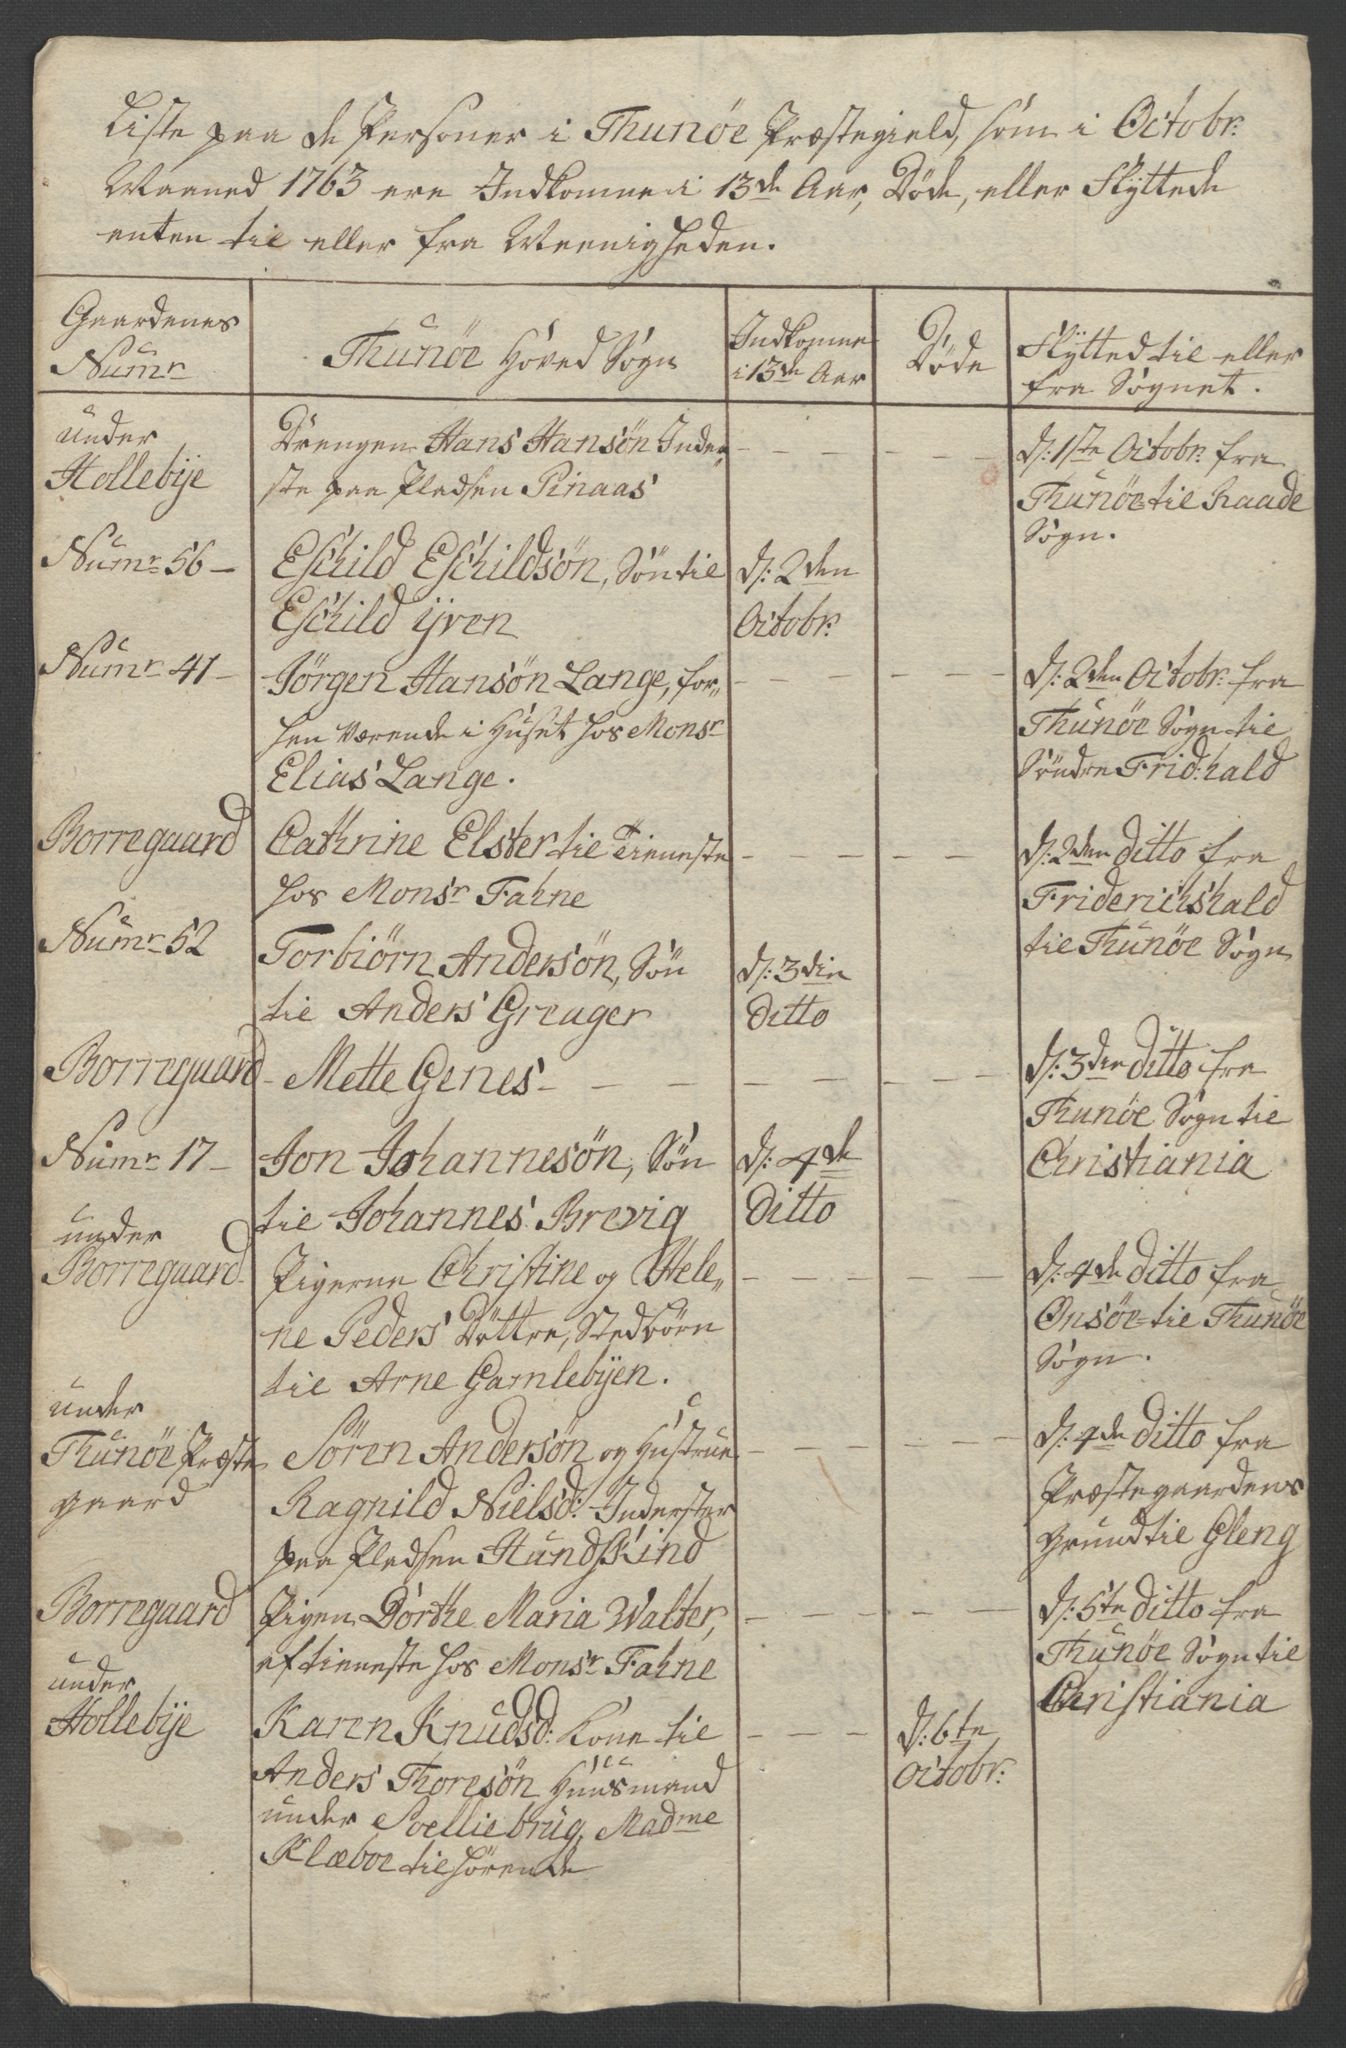 Liste paa de Personer i Thunøe Præstegield, som i Octobr:
Maaned 1763 ere Indkomne i 13de Aar, Døde, eller Flyttede
enten til eller fra Meenigheden.
Gaardenes
Numr
Thunøe Hoved Sogn
Indkomne
i 13de Aar
Døde
Flytted til eller
fra Sognet.
under
Hollebije
Drengen Hans Hansøn Inder„
ste paa Pladsen Pinaas
d: 1ste Octobr: fra
Thunøe til Raade
Sogn.
Numr: 56 –
Eschild Eschildsön, Sön til
Eschild ijven
d: 2den
Octobr:
Numr 41 –
Jørgen Hansøn Lange, for„
hen værende i Huset hos Monsr
Elias Lange.
d: 2den Octobr: fra
Thunøe Sogn til
Söndre Frid:hald
Borregaard
Cathrine Elster til Tieneste
hos Monsr Fahne
d: 2den ditto fra
Friderichshald
til Thunøe Sogn
Numr 52
Torbiörn Andersön, Sön
til Anders Greager
d: 3die
ditto
Borregaard
– Mette Genes –
d: 3die ditto fra
Thunøe Sogn til
Christiania
Numr 17 –
Jon Johannesön, Sön
til Johannes Brevig
d: 4de
ditto
under
Borregaard
Pigerne Christine og Hele„
ne Peders Döttre, Stedbörn
til Arne Gamlebÿen.
d: 4de ditto fra
Onsöe til Thunöe
Sogn.
under
Thunøe Præste
gaard
Sören Andersön og Hustrue
Ragnild Nielsd: Inderster
paa Pladsen Hundskind
d: 4de ditto fra
Præstegaardens
grund til Gleng
Borregaard
Pigen Dorthe Maria Walter,
af tieneste hos Monsr Fahne
d: 5te ditto fra
Thunøe Sogn til
Christiania
under
Hollebije
Karen Knudsd: Kone til
Anders Thoresøn Huusmand
under Soelliebrug, Madme
Klæboe tilhörende
d: 6te
Octobr: